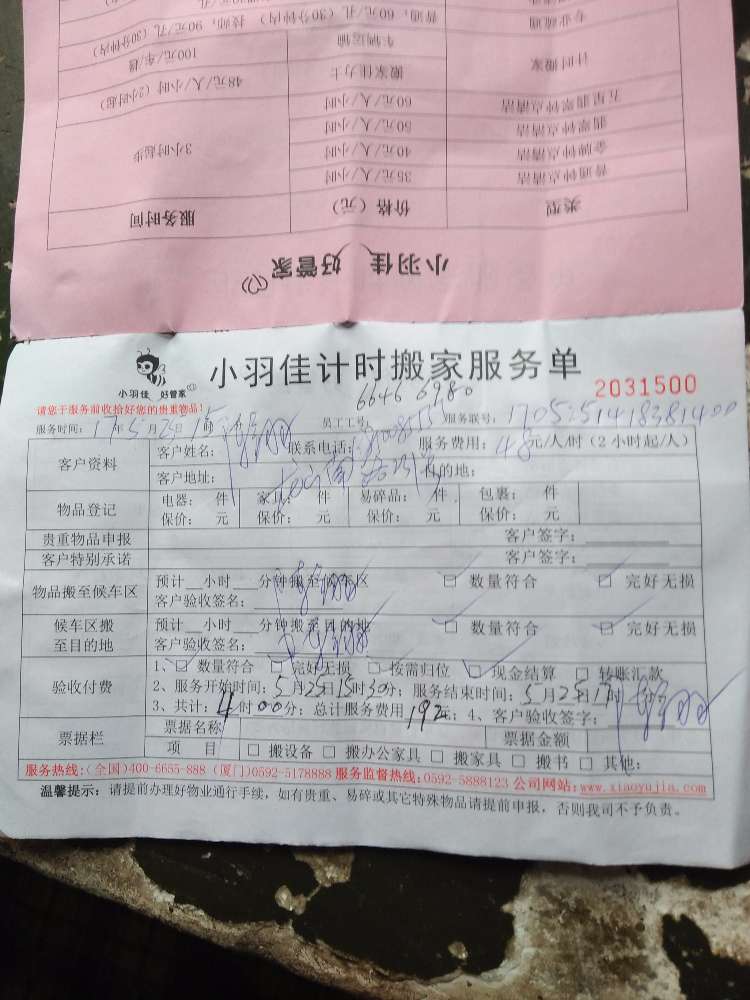 小羽佳 好管家
类型 价格（元） 服务时间
普通钟点清洁 35元/人/小时 3小时起步
金牌钟点清洁 40元/人/小时
翡翠钟点清洁 50元/人/小时
五星翡翠钟点清洁 60元/人/小时
计时搬家 搬家佳力士 48元/人/小时（2小时起）
车辆运输 100元/车/趟
专业疏通 普通，60元/孔（30分钟内）技师，90元/孔（30分钟内）
小羽佳 好管家
小羽佳计时搬家服务单
2031500
请您于服务前收拾好您的贵重物品!
6646 6980
服务时间：17年5月25日 员工工号： 服务联号：
客户资料 客户姓名： 联系电话： 服务费用：48元/人/时（2小时起/人）
客户地址： 目的地：
物品登记 电器： 件 家具： 件 易碎品： 件 包裹： 件
保价： 元 保价： 元 保价： 元 保价： 元
贵重物品申报 客户签字：
客户特别承诺 客户签字：
物品搬至候车区 预计__小时__分钟搬至候车区 □ 数量符合 □ 完好无损
客户验收签名：
候车区搬至目的地 预计__小时__分钟搬至目的地 □ 数量符合 □ 完好无损
客户验收签名：
验收付费 1、□ 数量符合 □ 完好无损 □ 按需归位 □ 现金结算 □ 转账汇款
2、服务开始时间：5月25日15时30分；服务结束时间：5月25日17时
3、共计：4时00分；总计服务费用192元；4、客户验收签字：
票据栏 票据名称 票据金额
项 目 □ 搬设备 □ 搬办公家具 □ 搬家具 □ 搬书 □ 其他：
服务热线：(全国)400-6655-888 (厦门)0592-5178888 服务监督热线：0592-5888123 公司网站：www.xiaoyujia.com
温馨提示：请提前办理好物业通行手续，如有贵重、易碎或其它特殊物品请提前申报，否则我司不予负责。